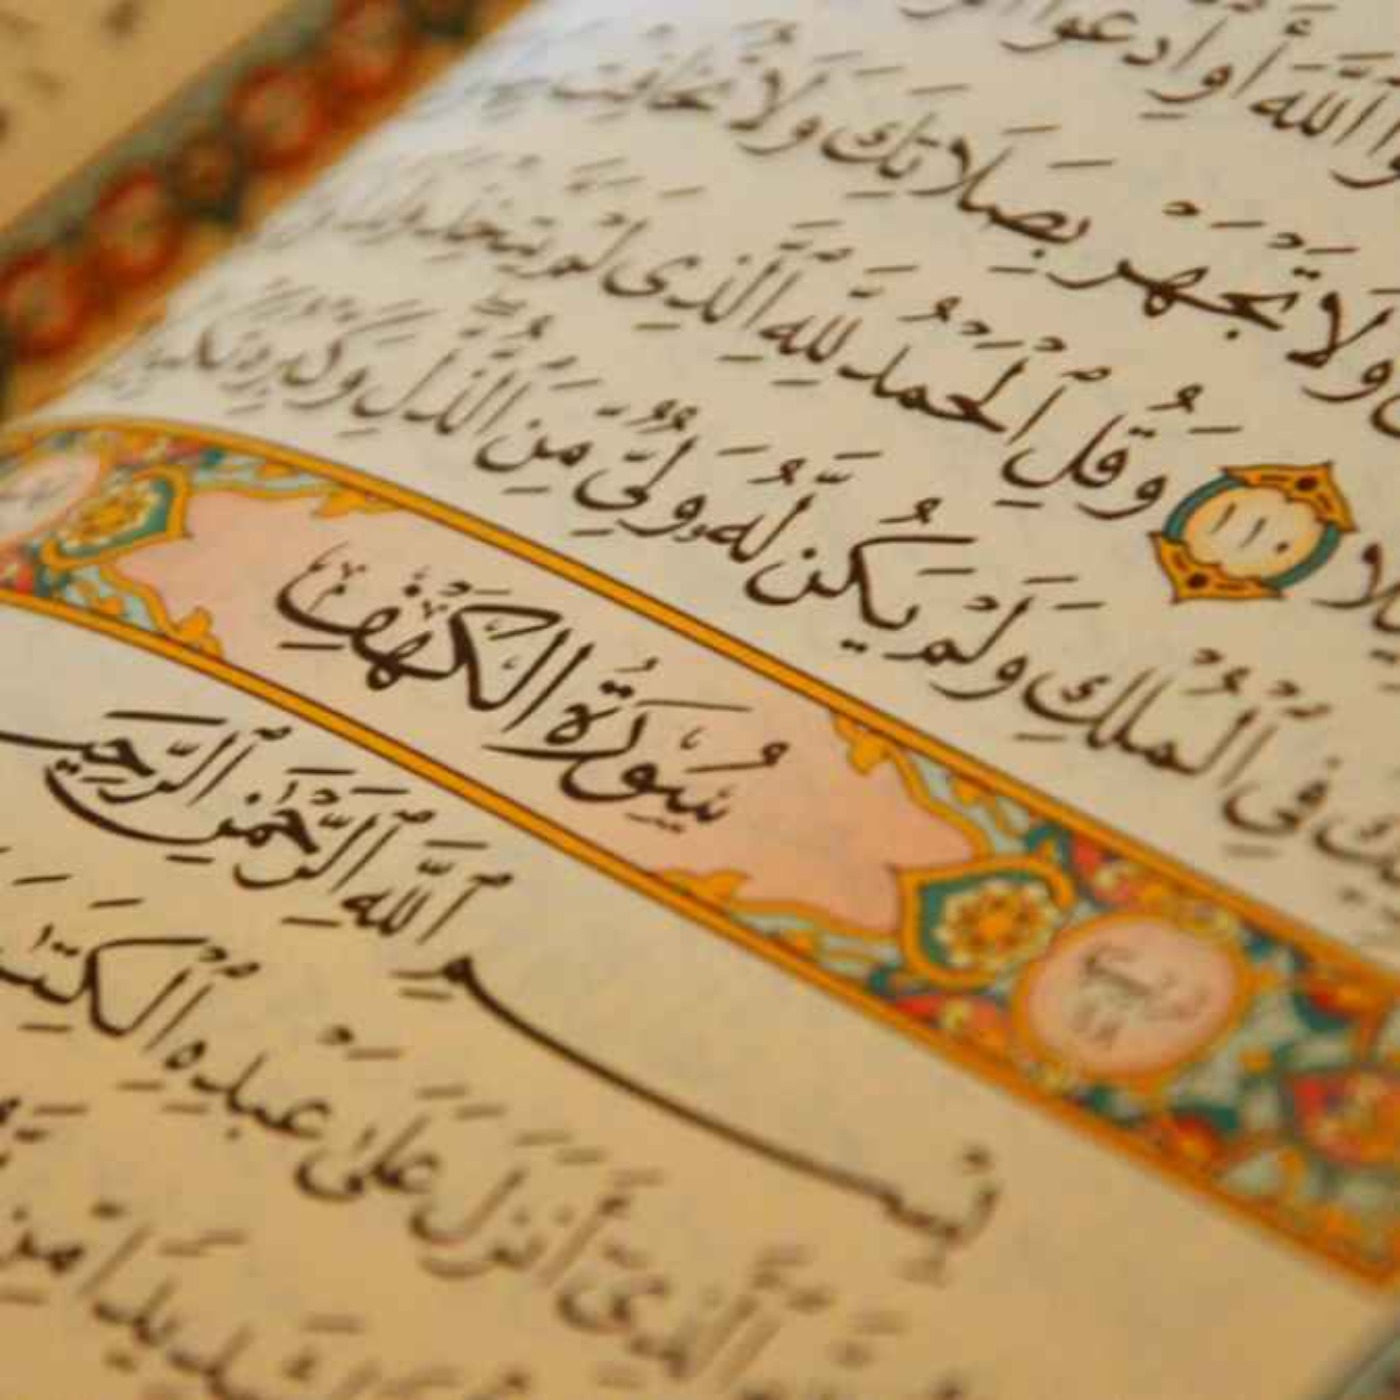 ٱللَّهَ أَوِ ٱدْعُوا۟
وَلَا تَجْهَرْ بِصَلَاتِكَ وَلَا تُخَافِتْ
١١٠ وَقُلِ ٱلْحَمْدُ لِلَّهِ ٱلَّذِى لَمْ يَتَّخِذْ
فِى ٱلْمُلْكِ وَلَمْ يَكُن لَّهُۥ وَلِىٌّ مِّنَ ٱلذُّلِّ وَكَبِّرْهُ
سُورَةُ الكَهْفِ
بِسْمِ ٱللَّهِ ٱلرَّحْمَٰنِ ٱلرَّحِيمِ
ٱلَّذِىٓ أَنزَلَ عَلَىٰ عَبْدِهِ ٱلْكِتَٰبَ
شَدِيدًا مِّن